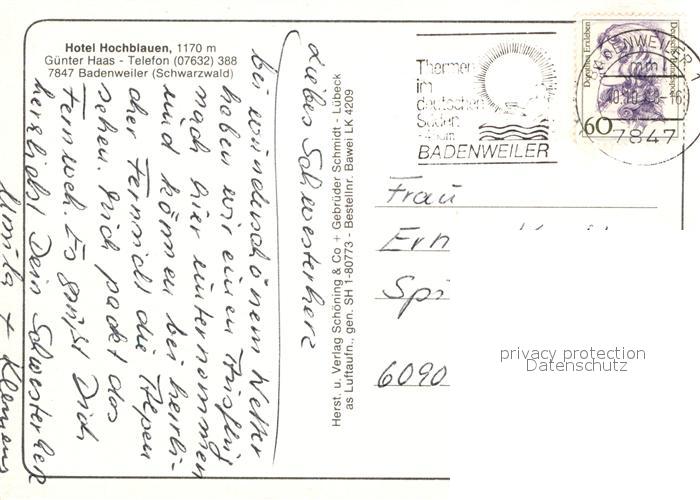 Hotel Hochblauen, 1170 m
Günter Haas - Telefon (07632) 388
7847 Badenweiler (Schwarzwald)
Liebes Schwesterherz
bei wunderschönem Wetter
haben wir einen Ausflug
nach hier unternommen
und können bei herrli-
cher Fernsicht die Alpen
sehen. Mich packt das
Fernweh. Es grüßt Dich
herzlichst Dein Schwesterherz
+ Klemens
Herst. u. Verlag Schöning & Co + Gebrüder Schmidt - Lübeck
as Luftaufn., gen. SH 1-80773 - Bestellnr. Bawei LK 4209
Thermen
im
deutschen
Süden
BADENWEILER
BADENWEILER
7847
Dorothea Erxleben
Deutsche Bundespost
60
Frau
Ern
Spi
6090
privacy protection
Datenschutz